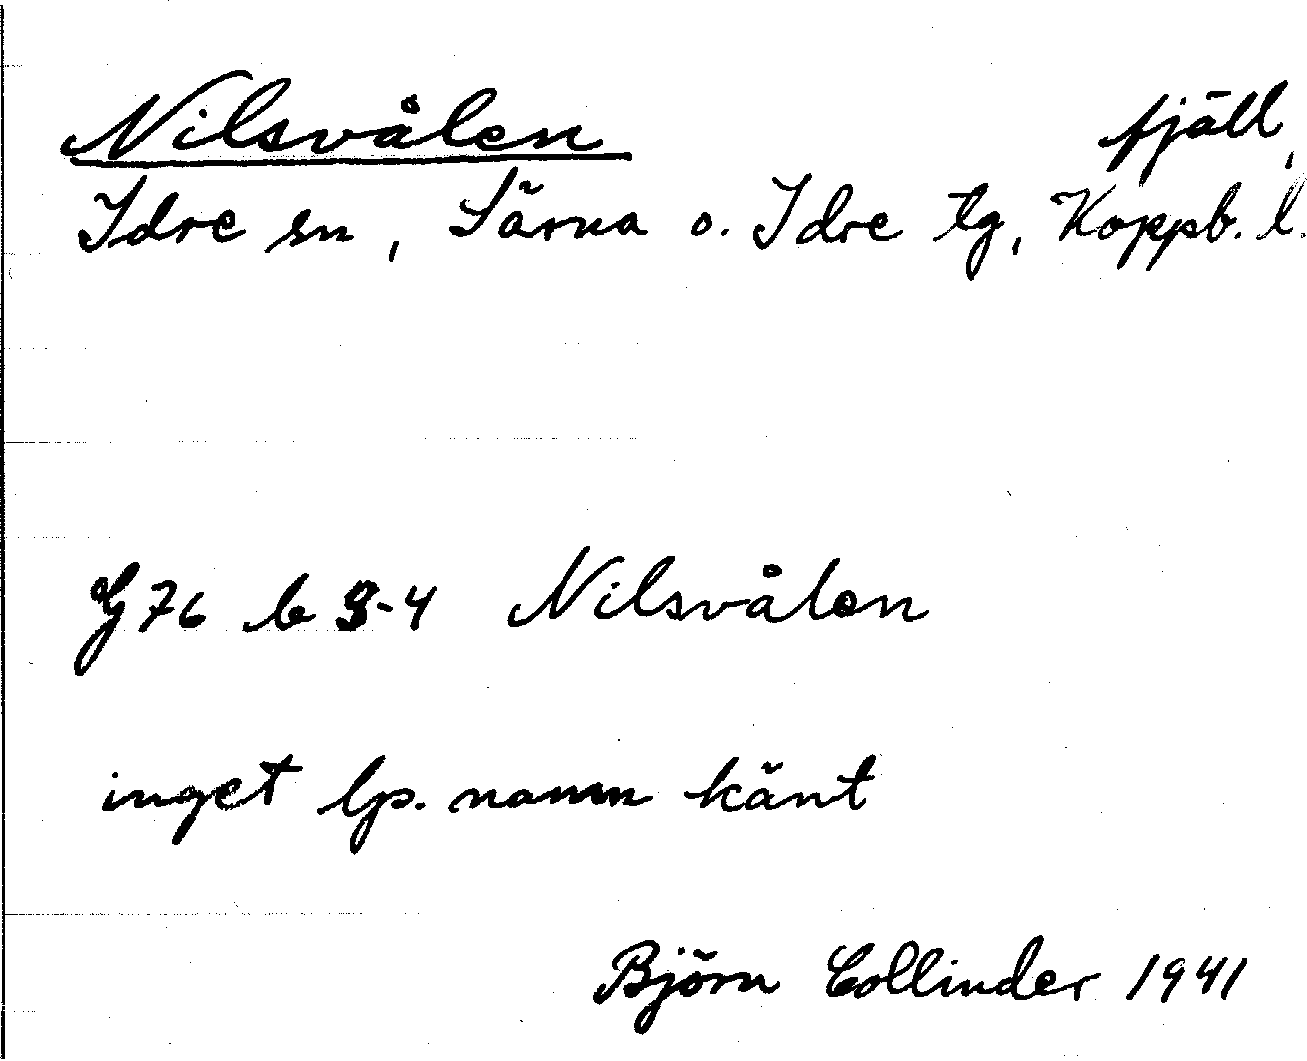 Nilsvålen fjäll,
Idre sn, Särna o. Idre tg, Koppb. l.
G 76 b 3-4 Nilsvålen
inget lp. namn känt
Björn Collinder 1941